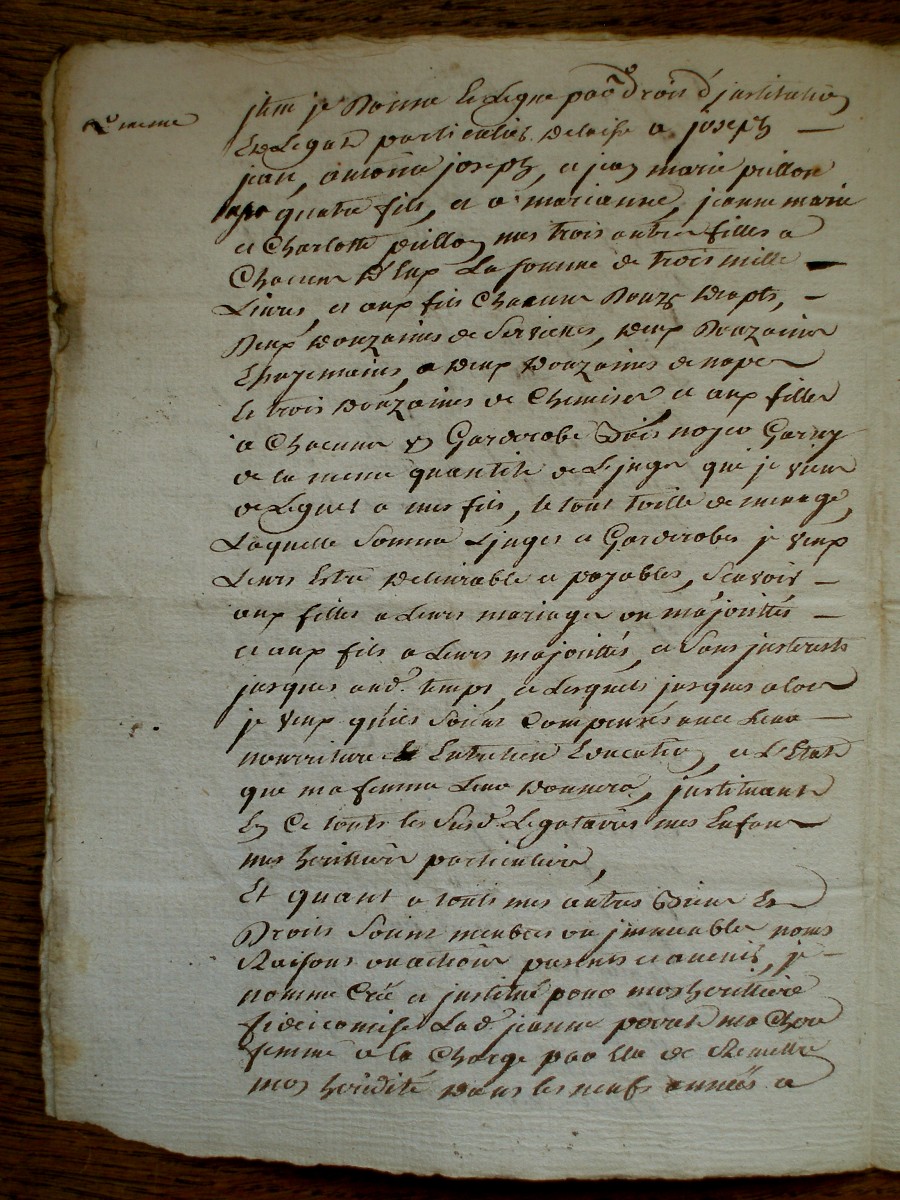 jtem je Donne Et Legue par Droit d'jnstitution
Et Legat particulier delaisse a joseph
jean, antoine joseph, et jean marie peillon
mes quatre fils, et a marianne, jeanne marie
et Charlotte peillon mes trois autres filles a
Chacun D'Eux La somme de trois mille
Livres, et aux fils Chacun Douze Draps,
Deux Douzaines de Servietes, Deux Douzaines
Essuyemains, Deux Douzaines de napes
Et trois Douzaines de Chemises et aux filles
a Chacune Garderobe Bois noyer Garny
de la meme quantité de Linge que je viens
de Leguer a mes fils, le tout toille de menage,
Laquelle Somme Linges et Garderobes je veux
Leurs Estre delivrable et payables, Scavoir
aux filles a Leurs mariages ou majorittés
et aux fils a Leurs majorittés, et Sans jnterests
jusques aud. temps, et Lesquels jusques alors
je veux qu'ils Soient Compensés avec Leur
nourriture Et Entretien Education, et L'Etat
que ma femme Leur Donnera, jnstituant
En Ce touts les Susd. Legataires mes Enfans
mes heritiers particuliers,
Et quant a touts mes autres Biens Et
Droits Soient meubles ou jmmeubles noms
Raisons ou actions presents et avenir, je
nomme Crée et jnstitue pour mos heritiere
fideicomisse Lad. jeanne ma Chere
femme a la Charge par Elle de Remettre
mon heredité Dans les neufs années a